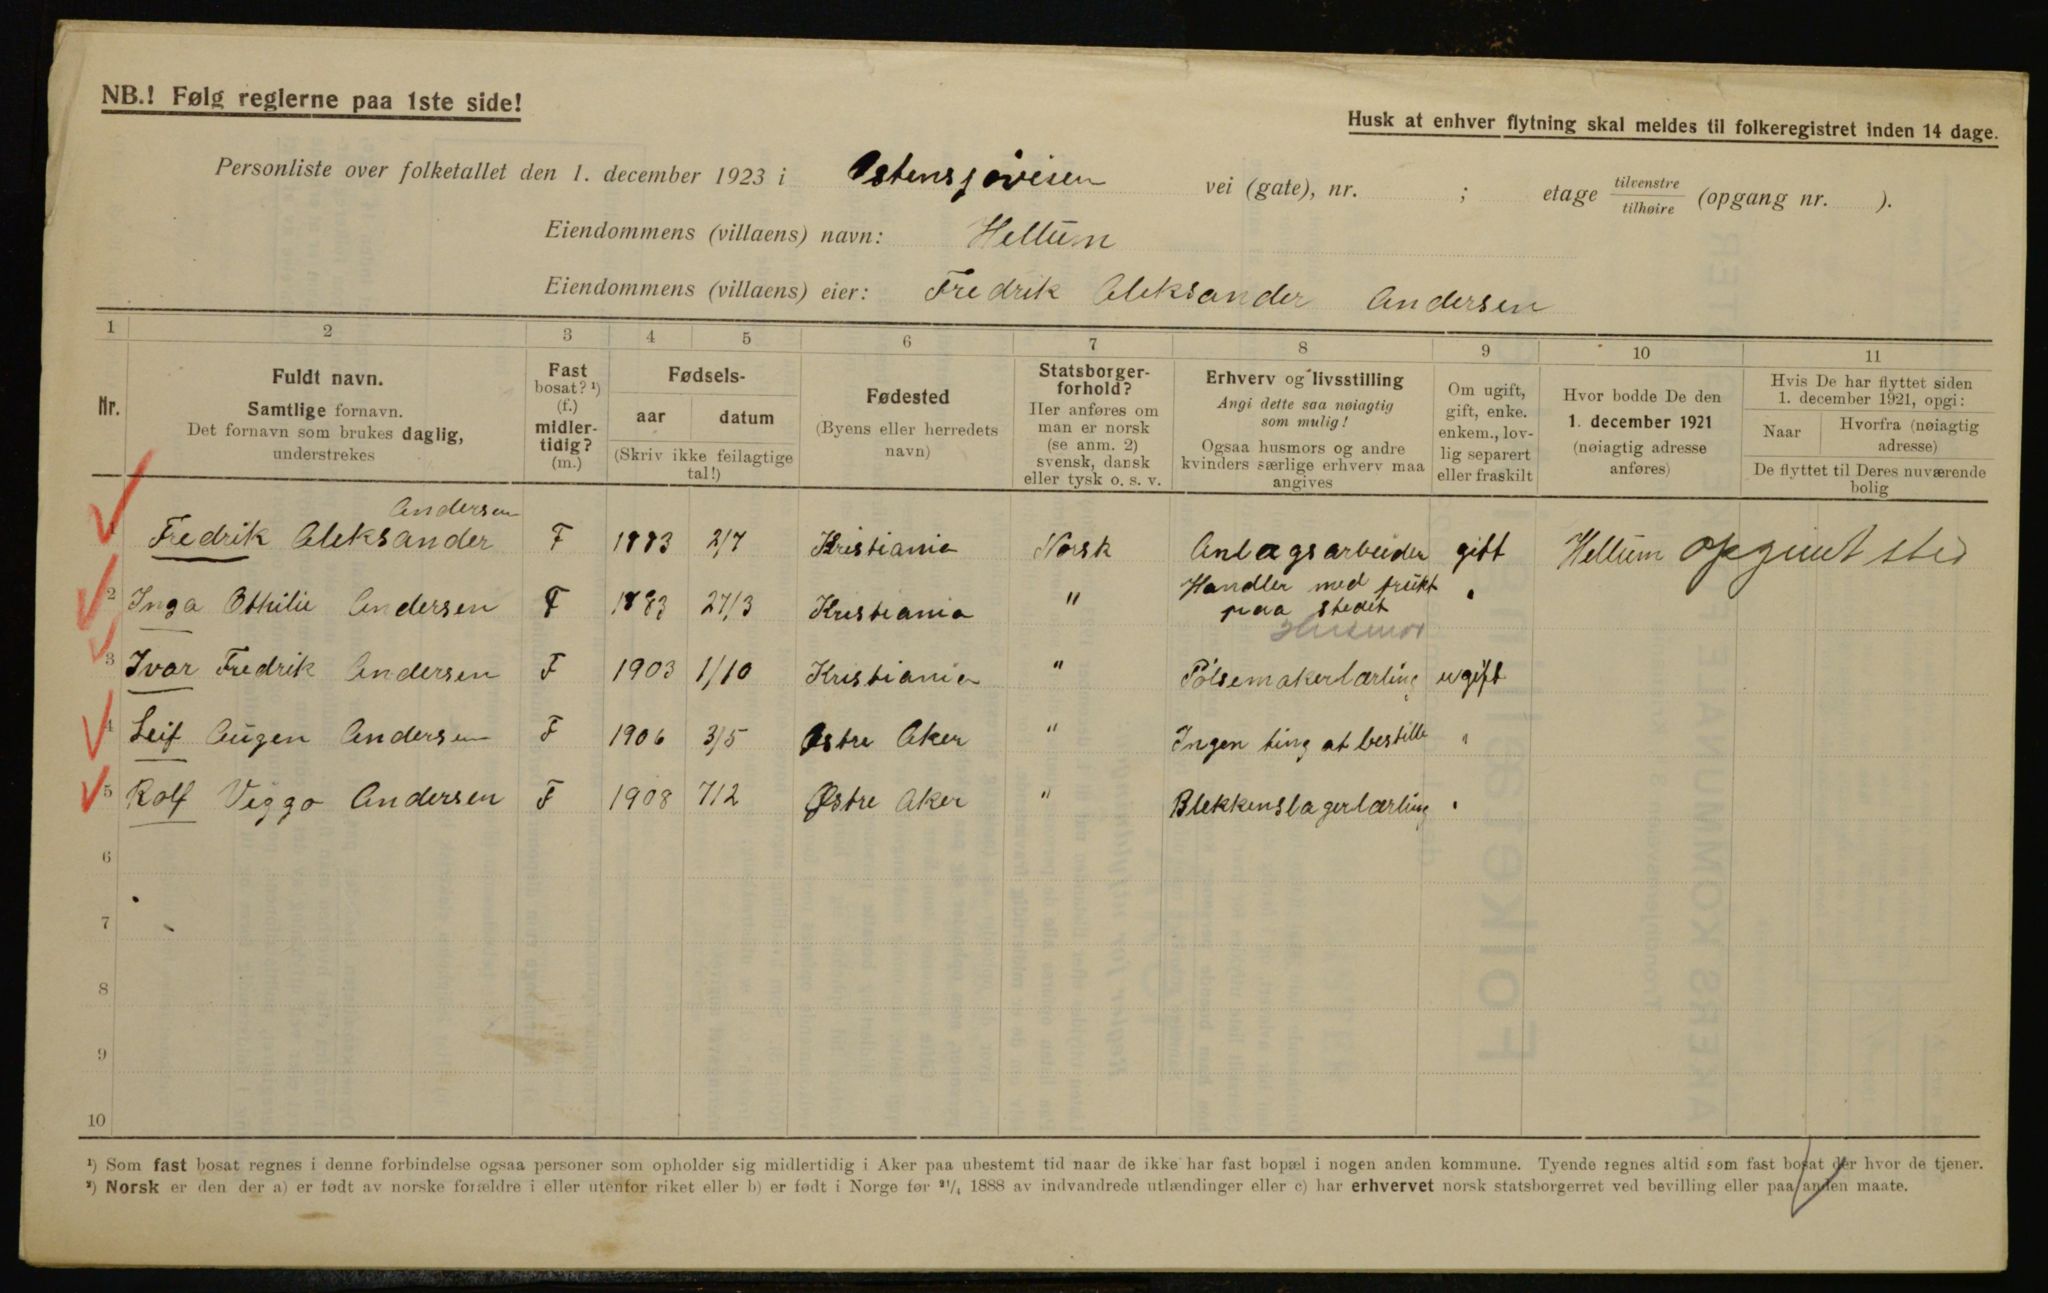 NB.! Følg reglerne paa 1ste side!
Husk at enhver flytning skal meldes til folkeregistret inden 14 dage.
Personliste over folketallet den 1. december 1923 i Østensjøveien vei (gate), nr. ; etage tilvenstre/tilhøire (opgang nr. ).
Eiendommens (villaens) navn: Hellum
Eiendommens (villaens) eier: Fredrik Aleksander Andersen
1 2 3 4 5 6 7 8 9 10 11
Nr.
Fuldt navn.
Samtlige fornavn.
Det fornavn som brukes daglig,
understrekes
Fast
bosat? ¹)
(f.)
midler-
tidig?
(m.)
Fødsels-
aar datum
(Skriv ikke feilagtige
tal!)
Fødested
(Byens eller herredets
navn)
Statsborger-
forhold?
Her anføres om
man er norsk
(se anm. 2)
svensk, dansk
eller tysk o. s. v.
Erhverv og livsstilling
Angi dette saa nøiagtig
som mulig!
Ogsaa husmors og andre
kvinders særlige erhverv maa
angives
Om ugift,
gift, enke.
enkem., lov-
lig separert
eller fraskilt
Hvor bodde De den
1. december 1921
(nøiagtig adresse
anføres)
Hvis De har flyttet siden
1. december 1921, opgi:
Naar Hvorfra (nøiagtig
adresse)
De flyttet til Deres nuværende
bolig
Andersen
1 Fredrik Aleksander F 1883 2/7 Kristiania Norsk Anlagsarbeider gift Hellum
2 Inga Othilie Andersen F 1883 27/3 Kristiania " Handler med frukt "
paa stedet
Husmor
3 Ivar Fredrik Andersen F 1903 1/10 Kristiania " Pölsemakerlærling ugift
4 Leif Augen Andersen F 1906 3/5 Østre Aker " Ingen ting at bestille "
5 Rolf Viggo Andersen F 1908 7/2 Østre Aker " Blekkenslagerlærling "
6
7
8
9
10
¹) Som fast bosat regnes i denne forbindelse ogsaa personer som opholder sig midlertidig i Aker paa ubestemt tid naar de ikke har fast bopæl i nogen anden kommune. Tyende regnes altid som fast bosat der hvor de tjener.
²) Norsk er den der a) er født av norske forældre i eller utenfor riket eller b) er født i Norge før ²¹/₄ 1888 av indvandrede utlændinger eller c) har erhvervet norsk statsborgerret ved bevilling eller paa anden maate.